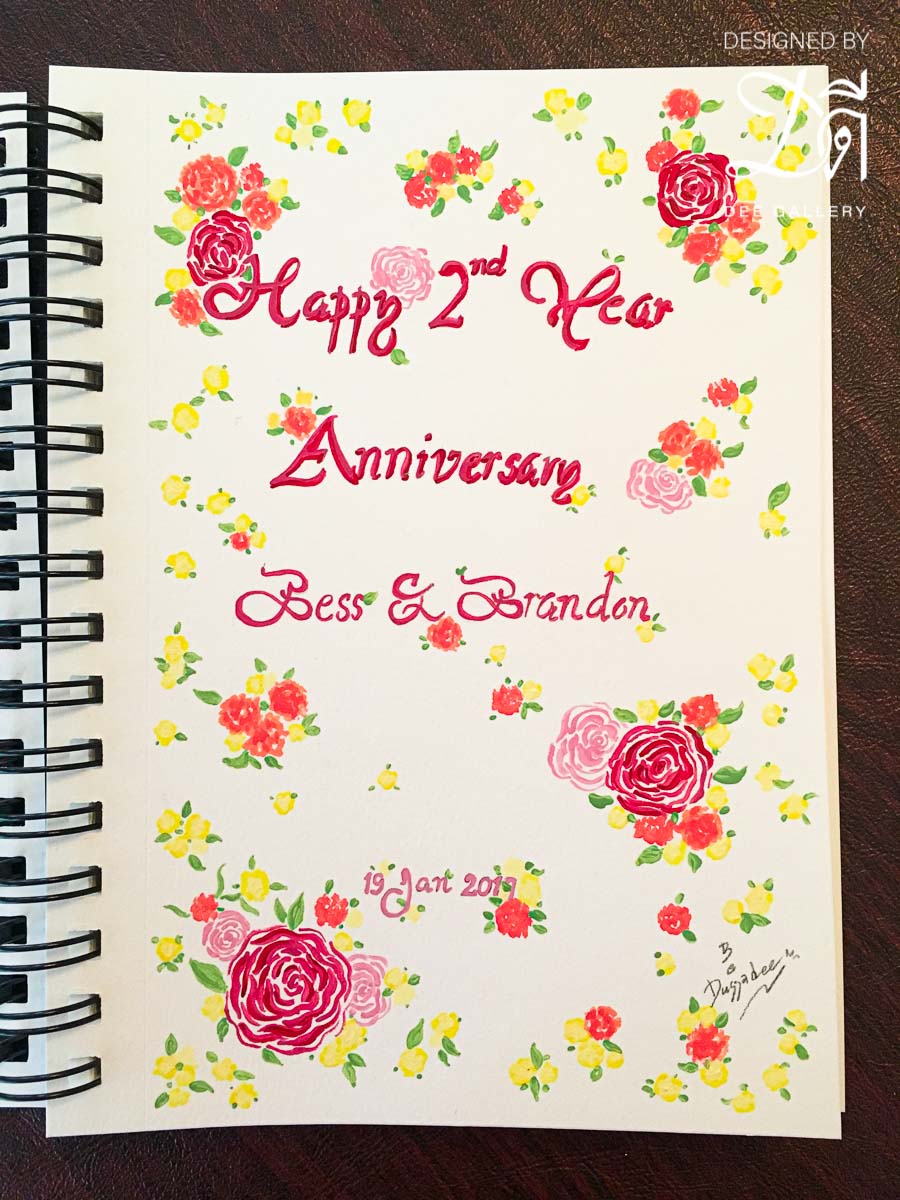 DESIGNED BY
ดี
DEE GALLERY
Happy 2nd Year
Anniversary
Bess & Brandon
19 Jan 2019